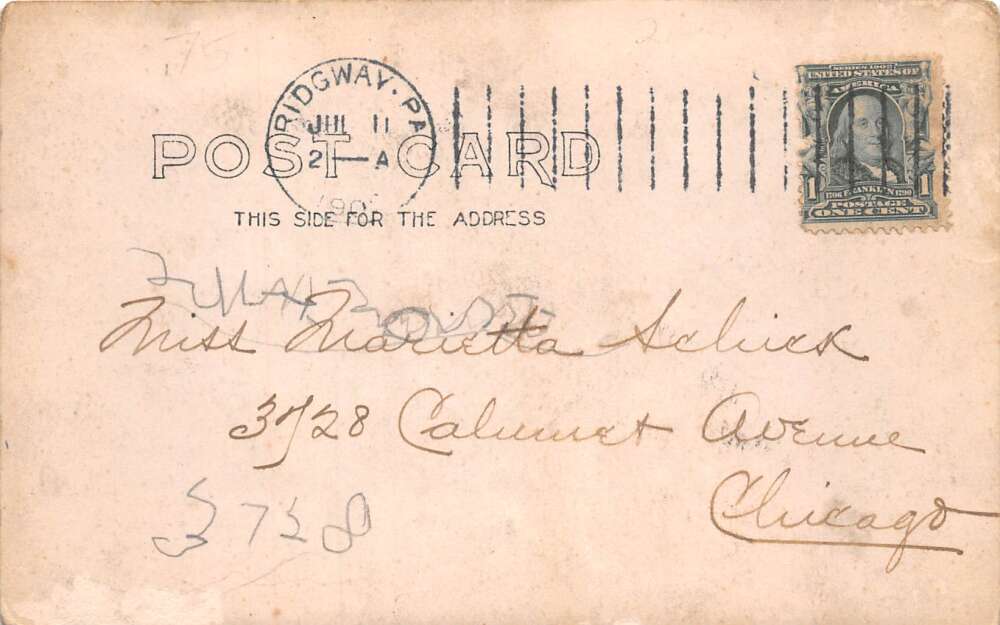 RIDGWAY. PA
JUL 11
2—A
190
SERIES 1902
UNITED STATES OF
AMERICA
1 1706 FRANKLIN 1790 1
POSTAGE
ONE CENT
POST CARD
THIS SIDE FOR THE ADDRESS
Miss Marietta Schick
3728 Calumet Avenue
Chicago
3728